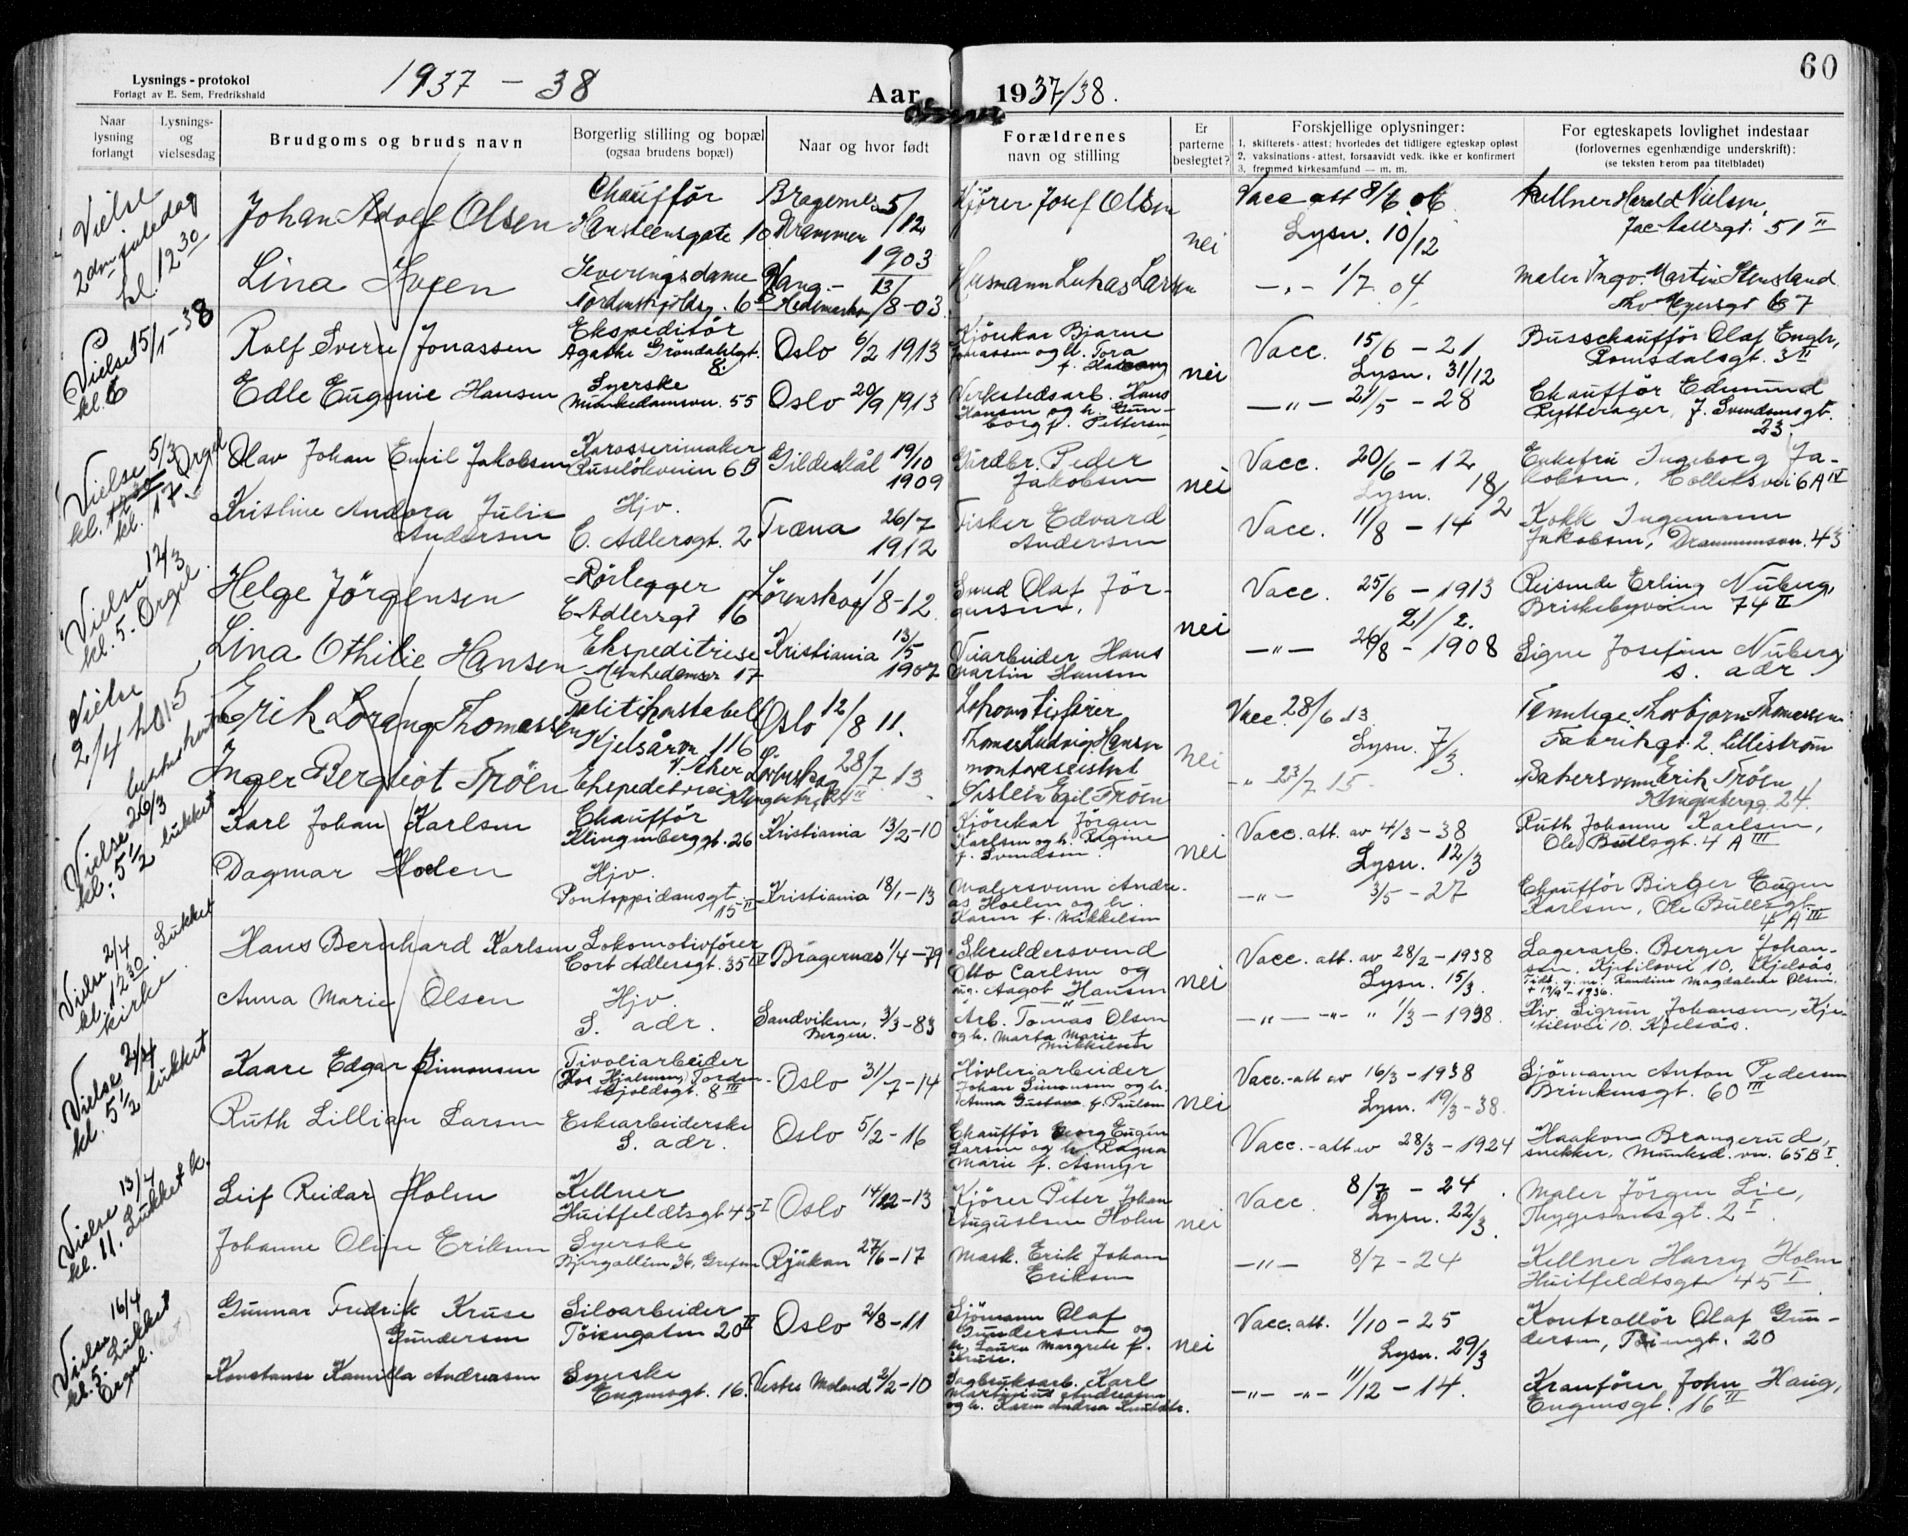 60
Lysnings-protokol
Forlagt av E. Sem, Fredrikshald
1937 - 38
Aar
1937/38.
Naar lysning forlangt
Lysnings- og vielsesdag
Brudgoms og bruds navn
Borgerlig stilling og bopæl (ogsaa brudens bopæl)
Naar og hvor født
Forældrenes navn og stilling
Er parterne beslegtet?
Forskjellige oplysninger:
1. skifterets-attest; hvorledes det tidligere egteskap opløst
2. vaksinations-attest, forsaavidt vedk. ikke er konfirmert
3. fremmed kirkesamfund — m. m.
For egteskapets lovlighet indestaar
(forlovernes egenhændige underskrift):
(se teksten herom paa titelbladet)
Vielse 2den juledag kl. 12 30
Johan Adolf Olsen
Chauffør
Hansteensgate 10
Bragernes 5/12
Drammen 1903
Kjører Josef Olsen
nei
Vacc att 8/6 06
Lysn. 10/12
Kellner Harald Nielsen,
Jac Aallsgt. 51 II
Lina Hveen
Serveringsdame
Tordenskjoldsg. 6
Vang - Hedemarken 13/8-03
Husmann Lukas Larsen
-„- 1/7 04
Maler Ingv. Martin Stensland
Thv Meyersgt 67
Vielse 15/1-38 kl. 6
Rolf Sverre Jonassen
Ekspeditør
Agathe Gröndahlgt. 8.
Oslo 6/2 1913
Kjörekar Bjarne
Jonassen og h. Tora
nei
Vacc. 15/6 - 21
Lysn. 31/12
Busschaufför Olaf Engbr,
Romsdalsgt. 3 II
Edle Eugenie Hansen
Syerske
Munkedamsvn. 55
Oslo 20/9 1913
Verkstedsarb. Hans
Hansen og h. Gun-
borg f. Pettersen
-„- 21/5 - 28
Chaufför Edmund
Rytterager, J. Svendsensgt. 23
Vielse 5/3 kl. 17. Orgel
Olav Johan Emil Jakobsen
Karosserimaker
Ruselökveien 6B
Gildeskål 19/10 1909
Gårdbr. Peder
Jakobsen
nei
Vacc. 20/6 - 12
Lysn. 18/2
Enkefru Ingeborg Ja-
kobsen, Colletsvei 6A IV
Kristine Andora Julie
Andersen
Hjv.
C. Adlersgt. 2
Træna 26/7 1912
Fisker Edvard
Andersen
Vacc. 11/8 - 14
Kokk Ingemann
Jakobsen, Drammensvn. 43
Vielse 12/3 kl. 5. Orgel.
Helge Jörgensen
Rörlegger
C Adlersgt 16
Lörenskog 1/8-12
Smed Olaf Jör-
gensen.
nei
Vacc. 25/6 - 1913
21/2.
Reisende Erling Nuberg,
Briskebyveien 74 II
Lina Othilie Hansen
Ekspeditrise
Munkedamsv 17
Kristiania 13/5 1907
Veiarbeider Hans
Martin Hansen
-„- 26/8 - 1908
Signe Josefine Nuberg
s. adr
Vielse 2/4 kl 15
Erik Lorang Thomassen
Politikonstabel
Kjelsåsvn 116
V. Aker
Oslo 12/8 11.
Lokomotivfører
Thomas Ludvig Hansen
nei
Vacc. 28/6 13.
Lysn. 7/3.
Thorbjørn Thomassen
Fabrikgt. 2. Lillestrøm
Inger Bergliot Tröen
Ekspeditrise
28/7 13
montørassistent
Eistein Egil Trøen
„ 23/7 15-
Bakersvenn Erik Trøen
Klingenbergg. 24.
Vielse 26/3 kl: 5 1/2 lukket
Karl Johan Karlsen
Chaufför
Klingenberggt. 26
Kristiania 13/2-10
Kjörekar Jörgen
Karlsen og h. Regine
f. Svendsen.
nei
Vacc. att. av 4/3 - 38
Lysn. 12/3
Ruth Johanne Karlsen,
Ole Bullsgt. 4 A III
Dagmar Hoelen
Hjv.
Pontoppidansgt 15 II
Kristiania 18/1-13
Malersvenn Andre-
as Hoelen og h.
Karen f. Mikkelsen
-„- 3/5 - 27
Chaufför Birger Eugen
Karlsen, Ole Bullsgt. 4 A III
Vielse 2/4 kl. 1230. Lukket kirke.
Hans Bernhard Karlsen
Lokomotivförer
Cort Adlersgt. 35 IV
Bragernes 1/4-79
Skreddersvend
Otto Carlsen og
ug. Aagot Hansen
nei
Vacc. att. av 28/2 - 1938
Lysn. 15/3.
Lagerarb. Berger Johan-
sen. Kjetilsvei 10, Kjelsås
Tidl. g. m. Randine Magdalene Olsen
+ 19/9-1936.
Anna Marie Olsen
Hjv.
S. adr.
Sandviken, Bergen. 3/3-83
Arb. Tomas Olsen
og h. Marta Marie
Mikkelsen
-„- -„- „ 1/3 - 1938.
Frv. Sigrun Johansen, Kje-
tilsvei 10. Kjelsås.
Vielse 2/4 kl. 5 1/2 lukket
Kaare Edgar Simonsen
Tivoliarbeider
Hos Hjalmsen, Torden-
skjoldsgt. 8 III
Oslo 31/7-14
Høvleriarbeider
Johan Simonsen og h.
Anna Gustava f. Paulsen
nei
Vacc.-att av 16/3 - 1938
Lysn. 19/3-38.
Sjömann Anton Pedersen
Brinkensgt. 60 III
Ruth Lillian Larsen
Eskearbeiderske
S. adr.
Oslo 5/2-16
Chaufför Georg Eugen
Larsen og h. Ragna
Marie f. Asmyr
Vacc.-att av 28/3 - 1924
Haakon Brangerud,
snekker, Munked.vn. 65B I
Vielse 13/4 kl. 11. Lukket k.
Leif Reidar Holm
Kellner
Huitfeldtsgt 45 I
Oslo 14/12-13
Kjörer Peter Johan
Augustsen Holm
nei
Vacc 8/7 - 24.
Lysn. 22/3.
Maler Jörgen Lie,
Thygesensgt. 2 I
Johanne Oline Eriksen
Syerske
Bjergalleen 36, Grefsen
Rjukan 27/6-17
Mask. Erik Johan
Eriksen
-„- 8/7 - 24
Kellner Harry Holm
Huitfeldtsgt 45 I
Vielse 16/4 kl. 5. Lukket Orgel.
Gunnar Fredrik Kruse
Gundersen
Siloarbeider
Töiengaten 20 II
Oslo 2/8-11
Sjömann Olaf
Gundersen og
h. Laura Margrete f.
Kruse.
nei
Vacc. att. 1/10 - 25
Lysn. 29/3
Kontrollör Olaf Gun-
dersen, Töiengt. 20
Konstanse Kamilla Andreasen
Syerske
Engensgt. 16.
Vestre Moland 2/2-10
Sagbruksarb. Karl
Martinius Andreasen
og h. Karen Andrea Knutdtr.
-„- -„- 11/12 - 14.
Kranförer John Haug,
Engensgt. 16 II